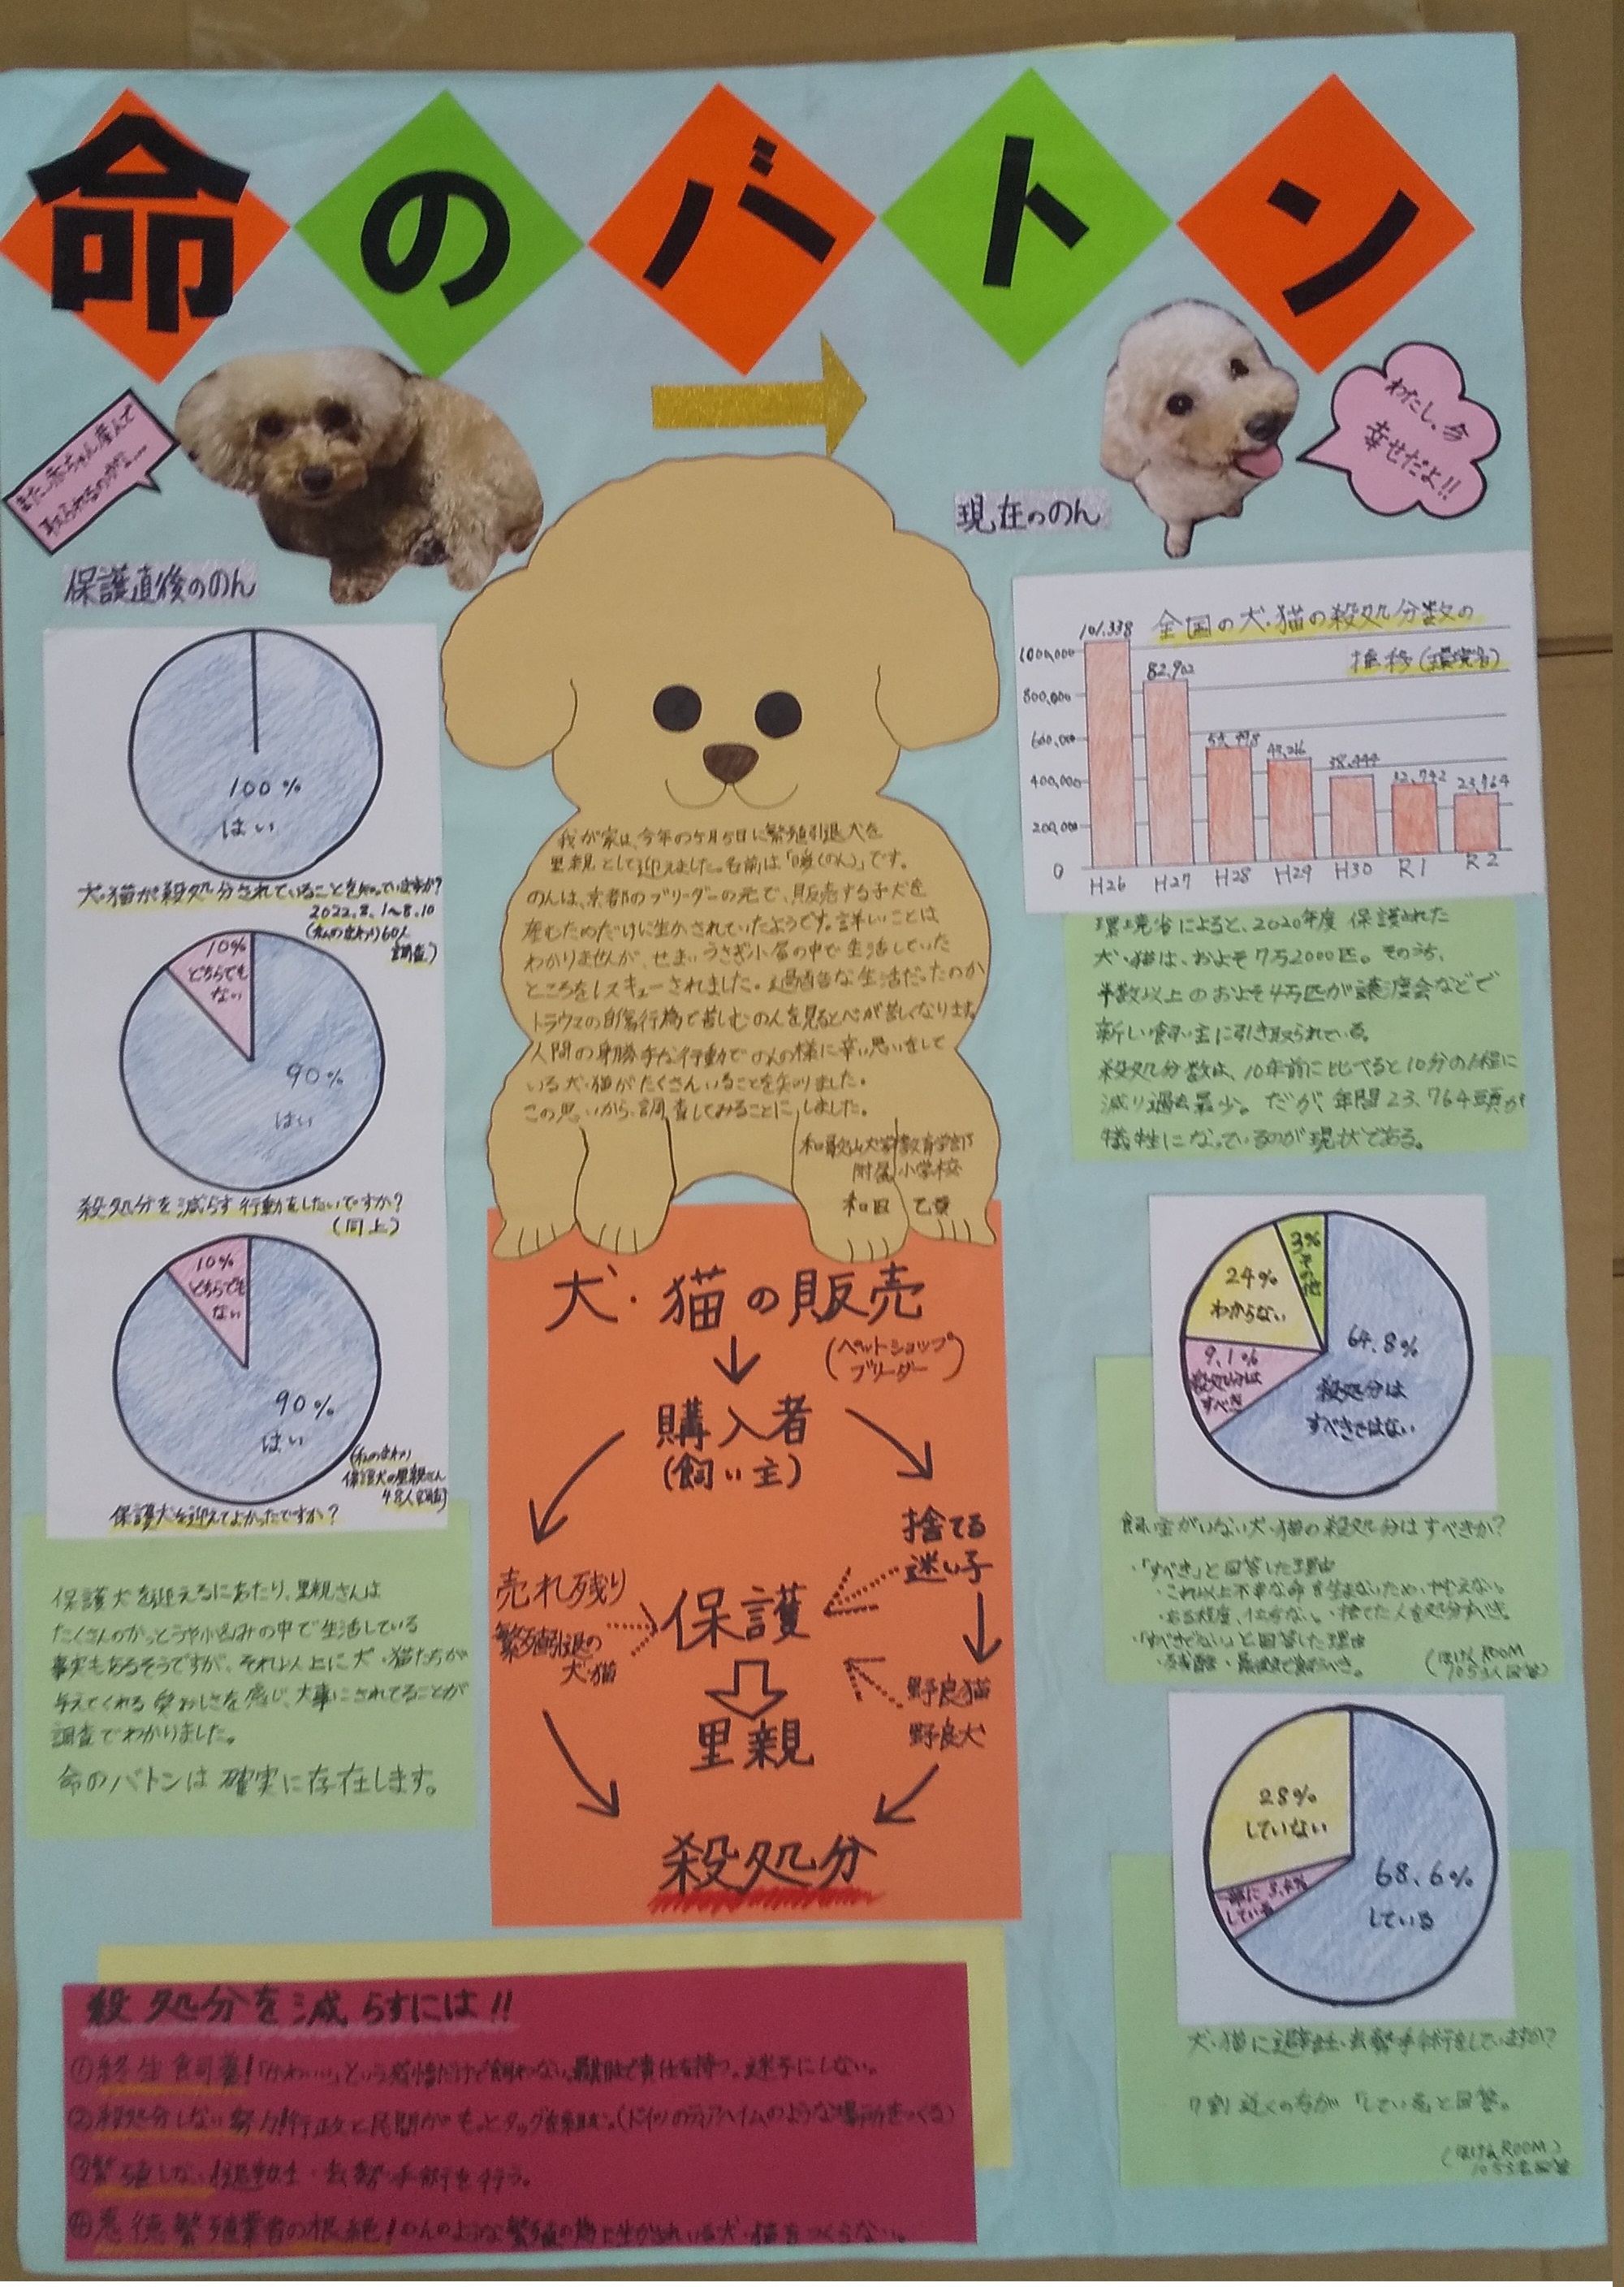 命のバトン
また赤ちゃん産んで
取られるのかな…
保護直後ののん
現在ののん
わたし、今
幸せだよ!!
100%
はい
犬・猫が殺処分されていることを知っていますか?
2022.8.1~8.10
(私のまわり)60人
調査)
10%
どちらでも
ない
90%
はい
殺処分を減らす行動をしたいですか?
(同上)
10%
どちらでも
ない
90%
はい
(私のまわり
保護犬の里親さん
48人調査)
保護犬を迎えてよかったですか?
保護犬を迎えるにあたり、里親さんは
たくさんのかっとうや悩みの中で生活している
事実もあるそうですが、それ以上に犬・猫たちが
与えてくれる愛おしさを感じ、大事にされてることが
調査でわかりました。
命のバトンは確実に存在します。
我が家は、今年の5月5日に繁殖引退犬を
里親として迎えました。名前は「暖(のん)」です。
のんは、京都のブリーダーの元で、販売する子犬を
産むためだけに生かされていたようです。詳しいことは
わかりませんが、せまいうさぎ小屋の中で生活していた
ところをレスキューされました。過酷な生活だったのか
トラウマの自傷行為で苦しむのんを見ると心が苦しくなります。
人間の身勝手な行動でのんの様に辛い思いをして
いる犬・猫がたくさんいることを知りました。
この思いから、調査してみることにしました。
和歌山大学教育学部
附属小学校
和田 乙
犬・猫の販売
(ペットショップ
ブリーダー)
購入者
(飼い主)
売れ残り
繁殖引退の
犬・猫
保護
捨てる
迷い子
里親
野良猫
野良犬
殺処分
全国の犬・猫の殺処分数の
推移(環境省)
101.338
82.902
43,216
38,444
32,742
23,764
1000,000
800,000
600,000
400,000
200,000
0
H26 H27 H28 H29 H30 R1 R2
環境省によると、2020年度 保護された
犬・猫は、およそ7万2000匹。そのうち、
半数以上のおよそ4万匹が譲渡会などで
新しい飼い主に引き取られている。
殺処分数は、10年前に比べると10分の1程に
減り過去最少。だが、年間23,764頭が
犠牲になっているのが現状である。
3%
その他
24%
わからない
9.1%
殺処分は
すべき
64.8%
殺処分は
すべきではない
飼い主がいない犬・猫の殺処分はすべきか?
・「すべき」と回答した理由
・これ以上不幸な命を生まないため、やむえない。
・ある程度、仕方ない。・捨てた人を処分すべき。
・「すべきでない」と回答した理由
・残酷・最後まで飼うべき。
(ほけんROOM
1053人回答)
28%
していない
一部に3.4%
している
68.6%
している
犬・猫に避妊・去勢手術をしていますか?
7割近くの方が「している」と回答。
(ほけんROOM)
1053名回答
殺処分を減らすには!!
①終生飼養!「かわいい」という感情だけで飼わない、最後まで責任を持つ。迷子にしない。
②殺処分しない努力!行政と民間がもっとタッグを組む。(ドイツのティアハイムのような場所をつくる)
③繁殖しない!避妊・去勢手術を行う。
④悪徳繁殖業者の根絶!のんのような繁殖の為に生かされている犬・猫をつくらない。